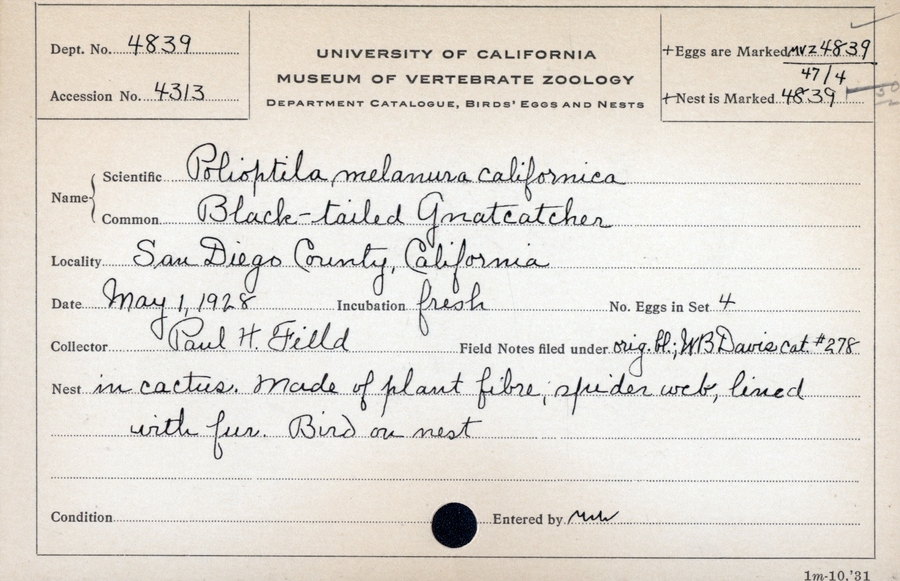 Dept. No. 4839
Accession No. 4313
UNIVERSITY OF CALIFORNIA
MUSEUM OF VERTEBRATE ZOOLOGY
DEPARTMENT CATALOGUE, BIRDS' EGGS AND NESTS
+Eggs are Marked MVZ 4839
47/4
+Nest is Marked 4839
Name
Scientific Polioptila melanura californica
Common Black-tailed Gnatcatcher
Locality San Diego County, California
Date May 1, 1928 Incubation fresh No. Eggs in Set 4
Collector Paul H. Filld Field Notes filed under orig. bl.; WB Davis cat. #278
Nest in cactus. Made of plant fibre, spider web, lined
with fur. Bird on nest
Condition Entered by
1m-10,'31